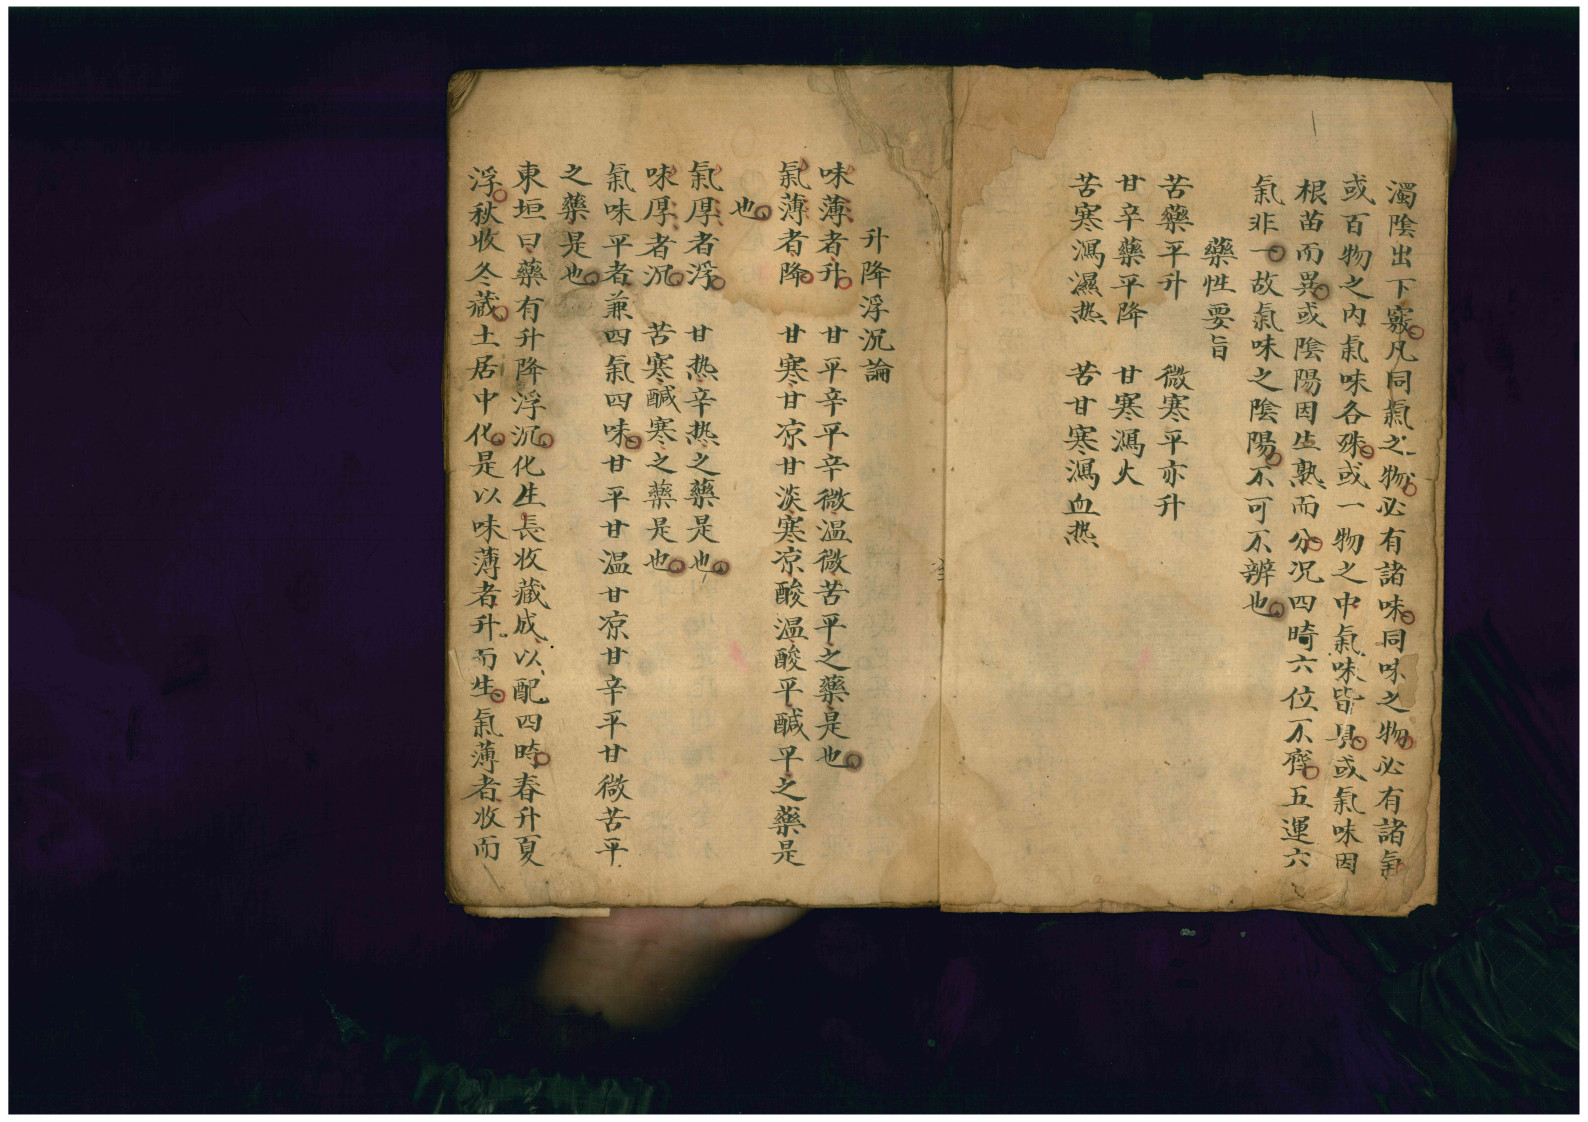 濁陰出下竅凡同氣之物必有諸味同味之物必有諸氣
或百物之内氣味各殊或一物之中氣味皆具或氣味因
根苗而異或陰陽因生熟而分况四時六位不齊五運六
氣非一故氣味之陰陽不可不辨也
藥性要旨
苦藥平升　微寒平亦升
甘辛藥平降　甘寒瀉火
苦寒瀉濕热　苦甘寒瀉血热
升降浮沉論
味薄者升　甘平辛平辛微温微苦平之藥是也
氣薄者降　甘寒甘凉甘淡寒凉酸温酸平醎平之藥是
也
氣厚者浮　甘热辛热之藥是也
味厚者沉　苦寒醎寒之藥是也
氣味平者兼四氣四味甘平甘温甘凉甘辛平甘微苦平
之藥是也
東垣曰藥有升降浮沉化生長收藏成以配四時春升夏
浮秋收冬藏土居中化是以味薄者升而生氣薄者收而